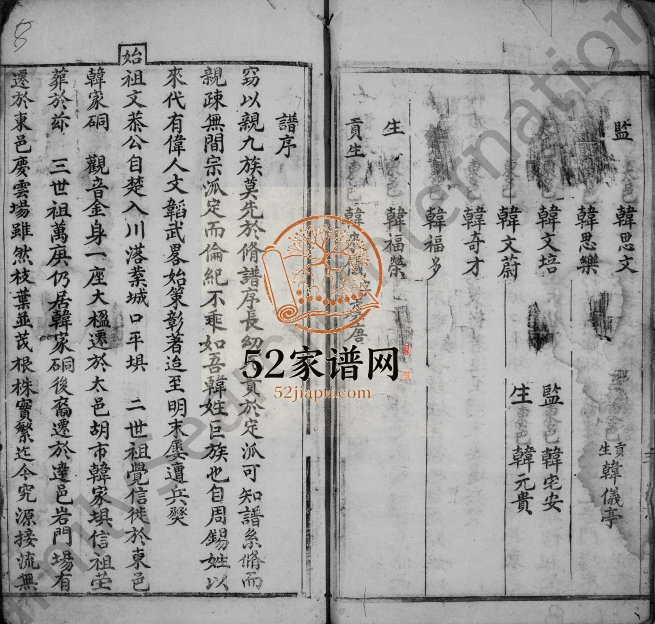 監
韓思文
韓思樂
韓文培
韓文蔚
韓奇才
韓福多
生
韓福榮
貢生
韓
貢生
韓儀亭
監
生
韓宅安
韓元貴
譜序
竊以親九族莫先於脩譜序長幼 貴於定派可知譜系脩而
親疎無間宗派定而倫紀不乘如吾韓姓巨族也自周錫姓以
來代有偉人文韜武畧始秉彰著迨至明末屢遭兵燹
始祖文恭公自楚入川落業城口平垻 二世祖覺信徙於東邑
韓家硐 觀音金身一座大楹遷於太邑胡市韓家垻信祖塋
葬於茲 三世祖萬庚仍居韓家硐後裔遷於達邑岩門場有
遷於東邑慶雲場雖然枝葉並茂根株實繁迄今究源接流無
52家谱网
52jiapu.com